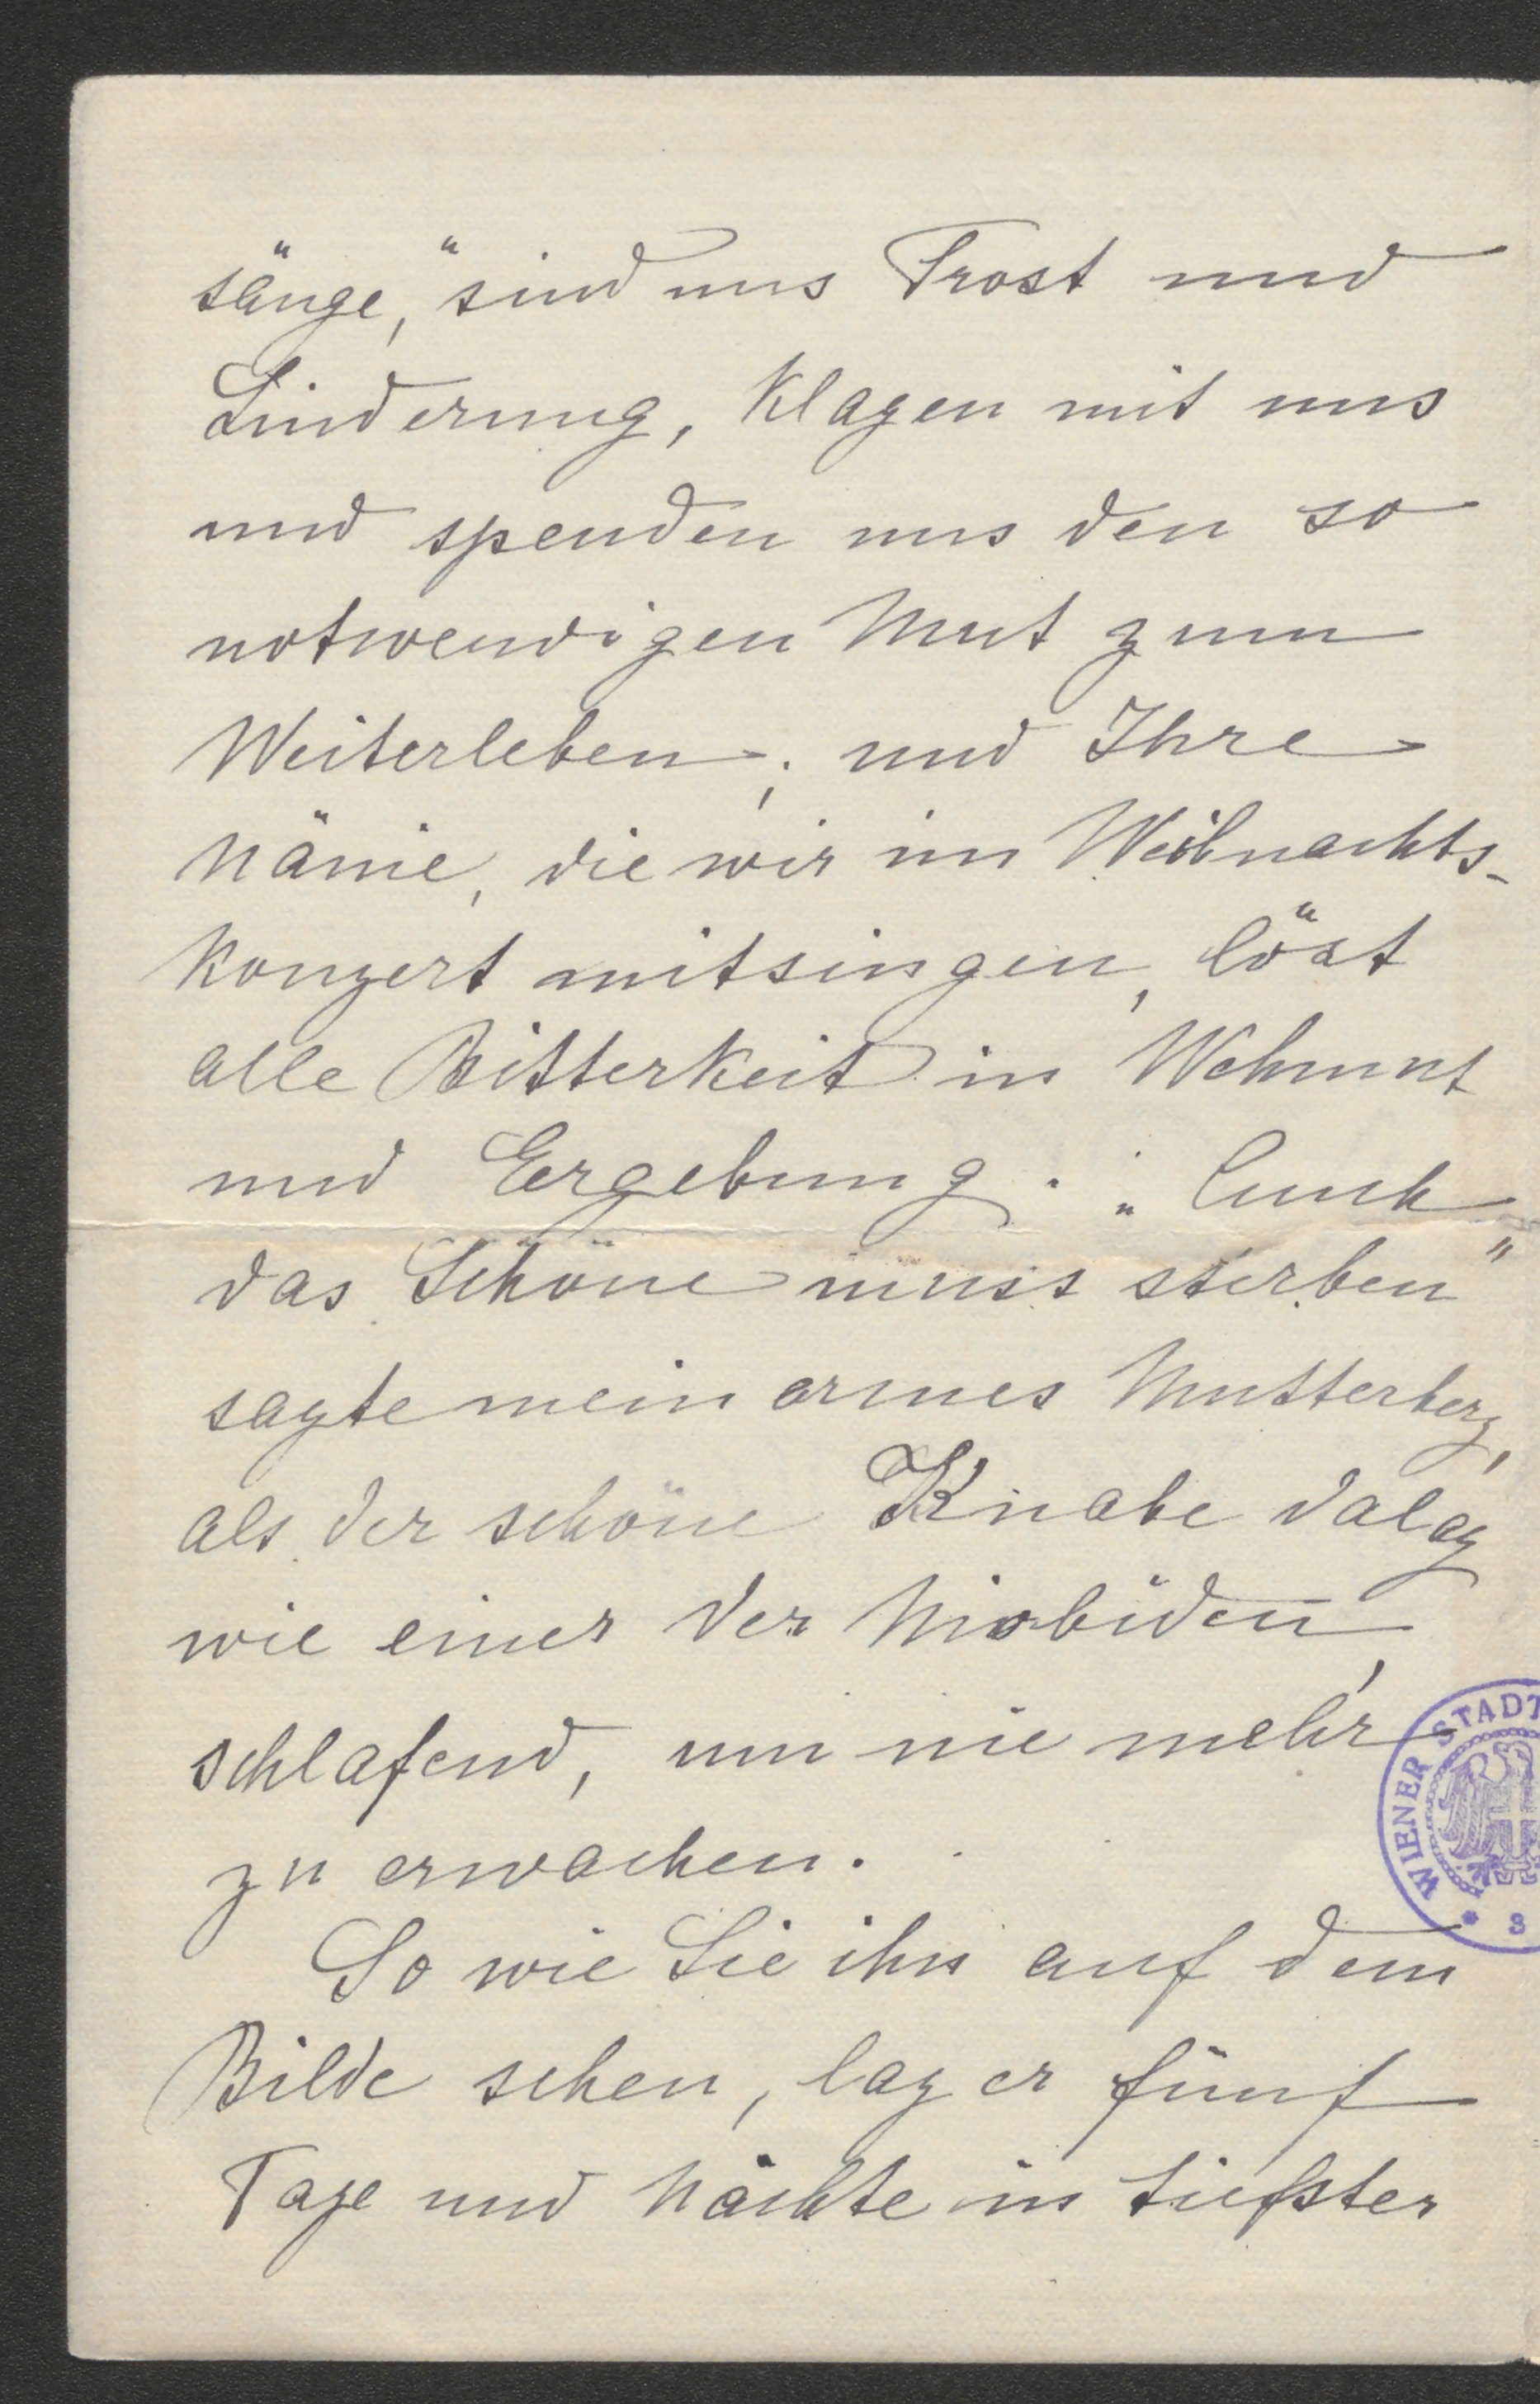 sänge," sind uns Trost und
Linderung, klagen mit uns
und spenden uns den so
notwendigen Mut zum
Weiterleben; und Ihre
Nänie, die wir im Weihnachts-
konzert mitsingen, löst
alle Bitterkeit in Wehmut
und Ergebung. „Auch
das Schöne muss sterben"
sagte mein armes Mutterherz,
als der schöne Knabe dalag
wie einer der Niobiden,
schlafend, um nie mehr
zu erwachen.
So wie Sie ihn auf dem
Bilde sehen, lag er fünf
Tage und Nächte in tiefster
WIENER STADT
* 3